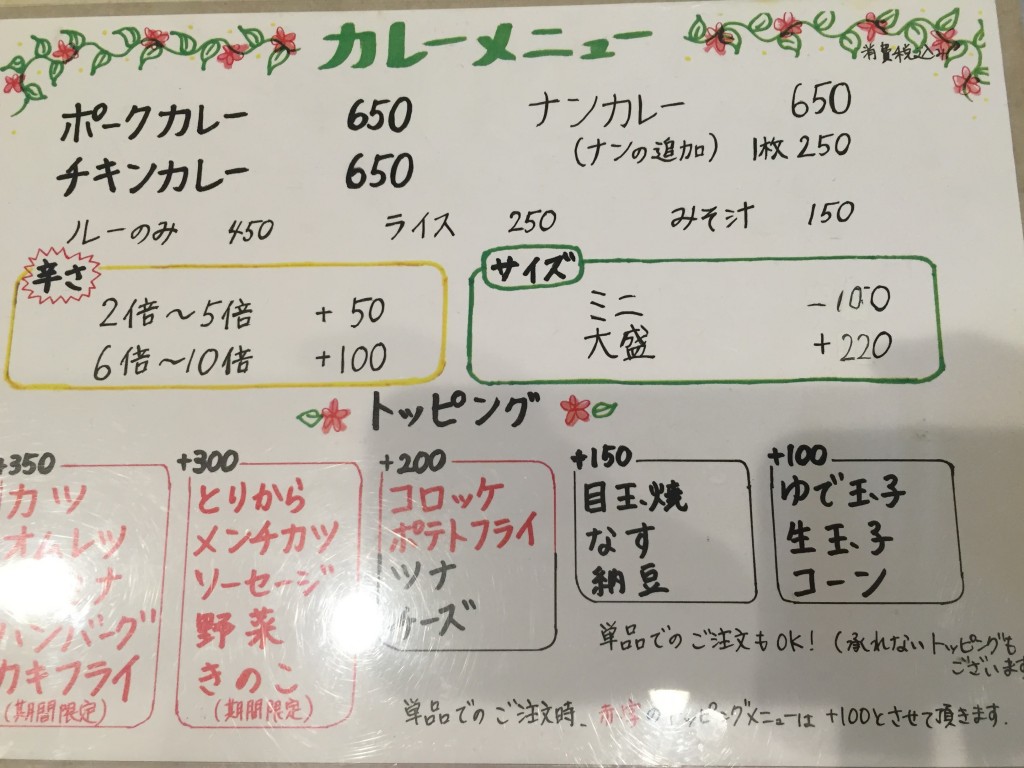 カレーメニュー
消費税込み
ポークカレー 650
チキンカレー 650
ナンカレー 650
(ナンの追加) 1枚 250
ルーのみ 450 ライス 250 みそ汁 150
辛さ
2倍～5倍 +50
6倍～10倍 +100
サイズ
ミニ -100
大盛 +220
トッピング
+350
カツ
オムレツ
ナ
ハンバーグ
カキフライ
(期間限定)
+300
とりから
メンチカツ
ソーセージ
野菜
きのこ
(期間限定)
+200
コロッケ
ポテトフライ
ツナ
チーズ
+150
目玉焼
なす
納豆
+100
ゆで玉子
生玉子
コーン
単品でのご注文もOK! (承れないトッピングも
ございます
単品でのご注文時、赤字のトッピングメニューは +100とさせて頂きます.